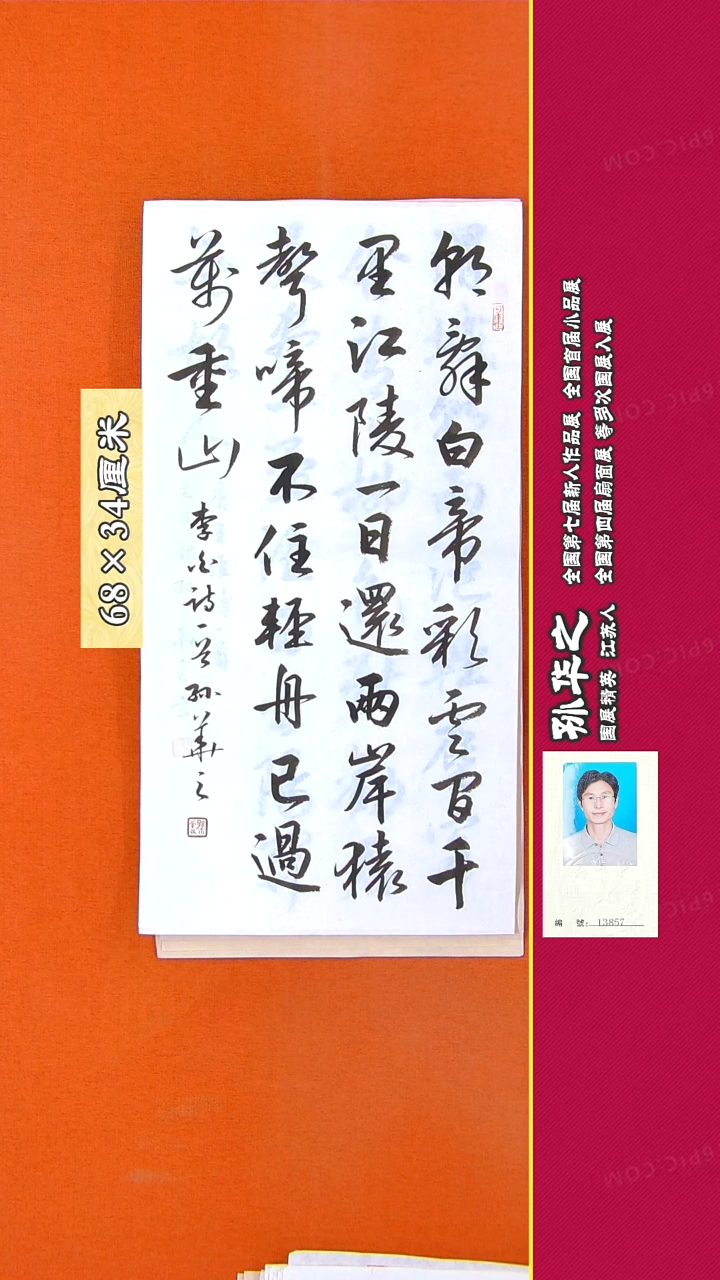 朝辭白帝彩雲間千
里江陵一日還兩岸猿
聲啼不住輕舟已過
萬重山 李白詩一首 孫華之
68×34厘米
孙华之
國展精英 江苏人
全國第七届新人作品展 全國首届小品展
全國第四届扇面展 等多次國展入展
編 號: 13857
6PIC.COM
6PIC.COM
6PIC.COM
6PIC.COM
6PIC.COM